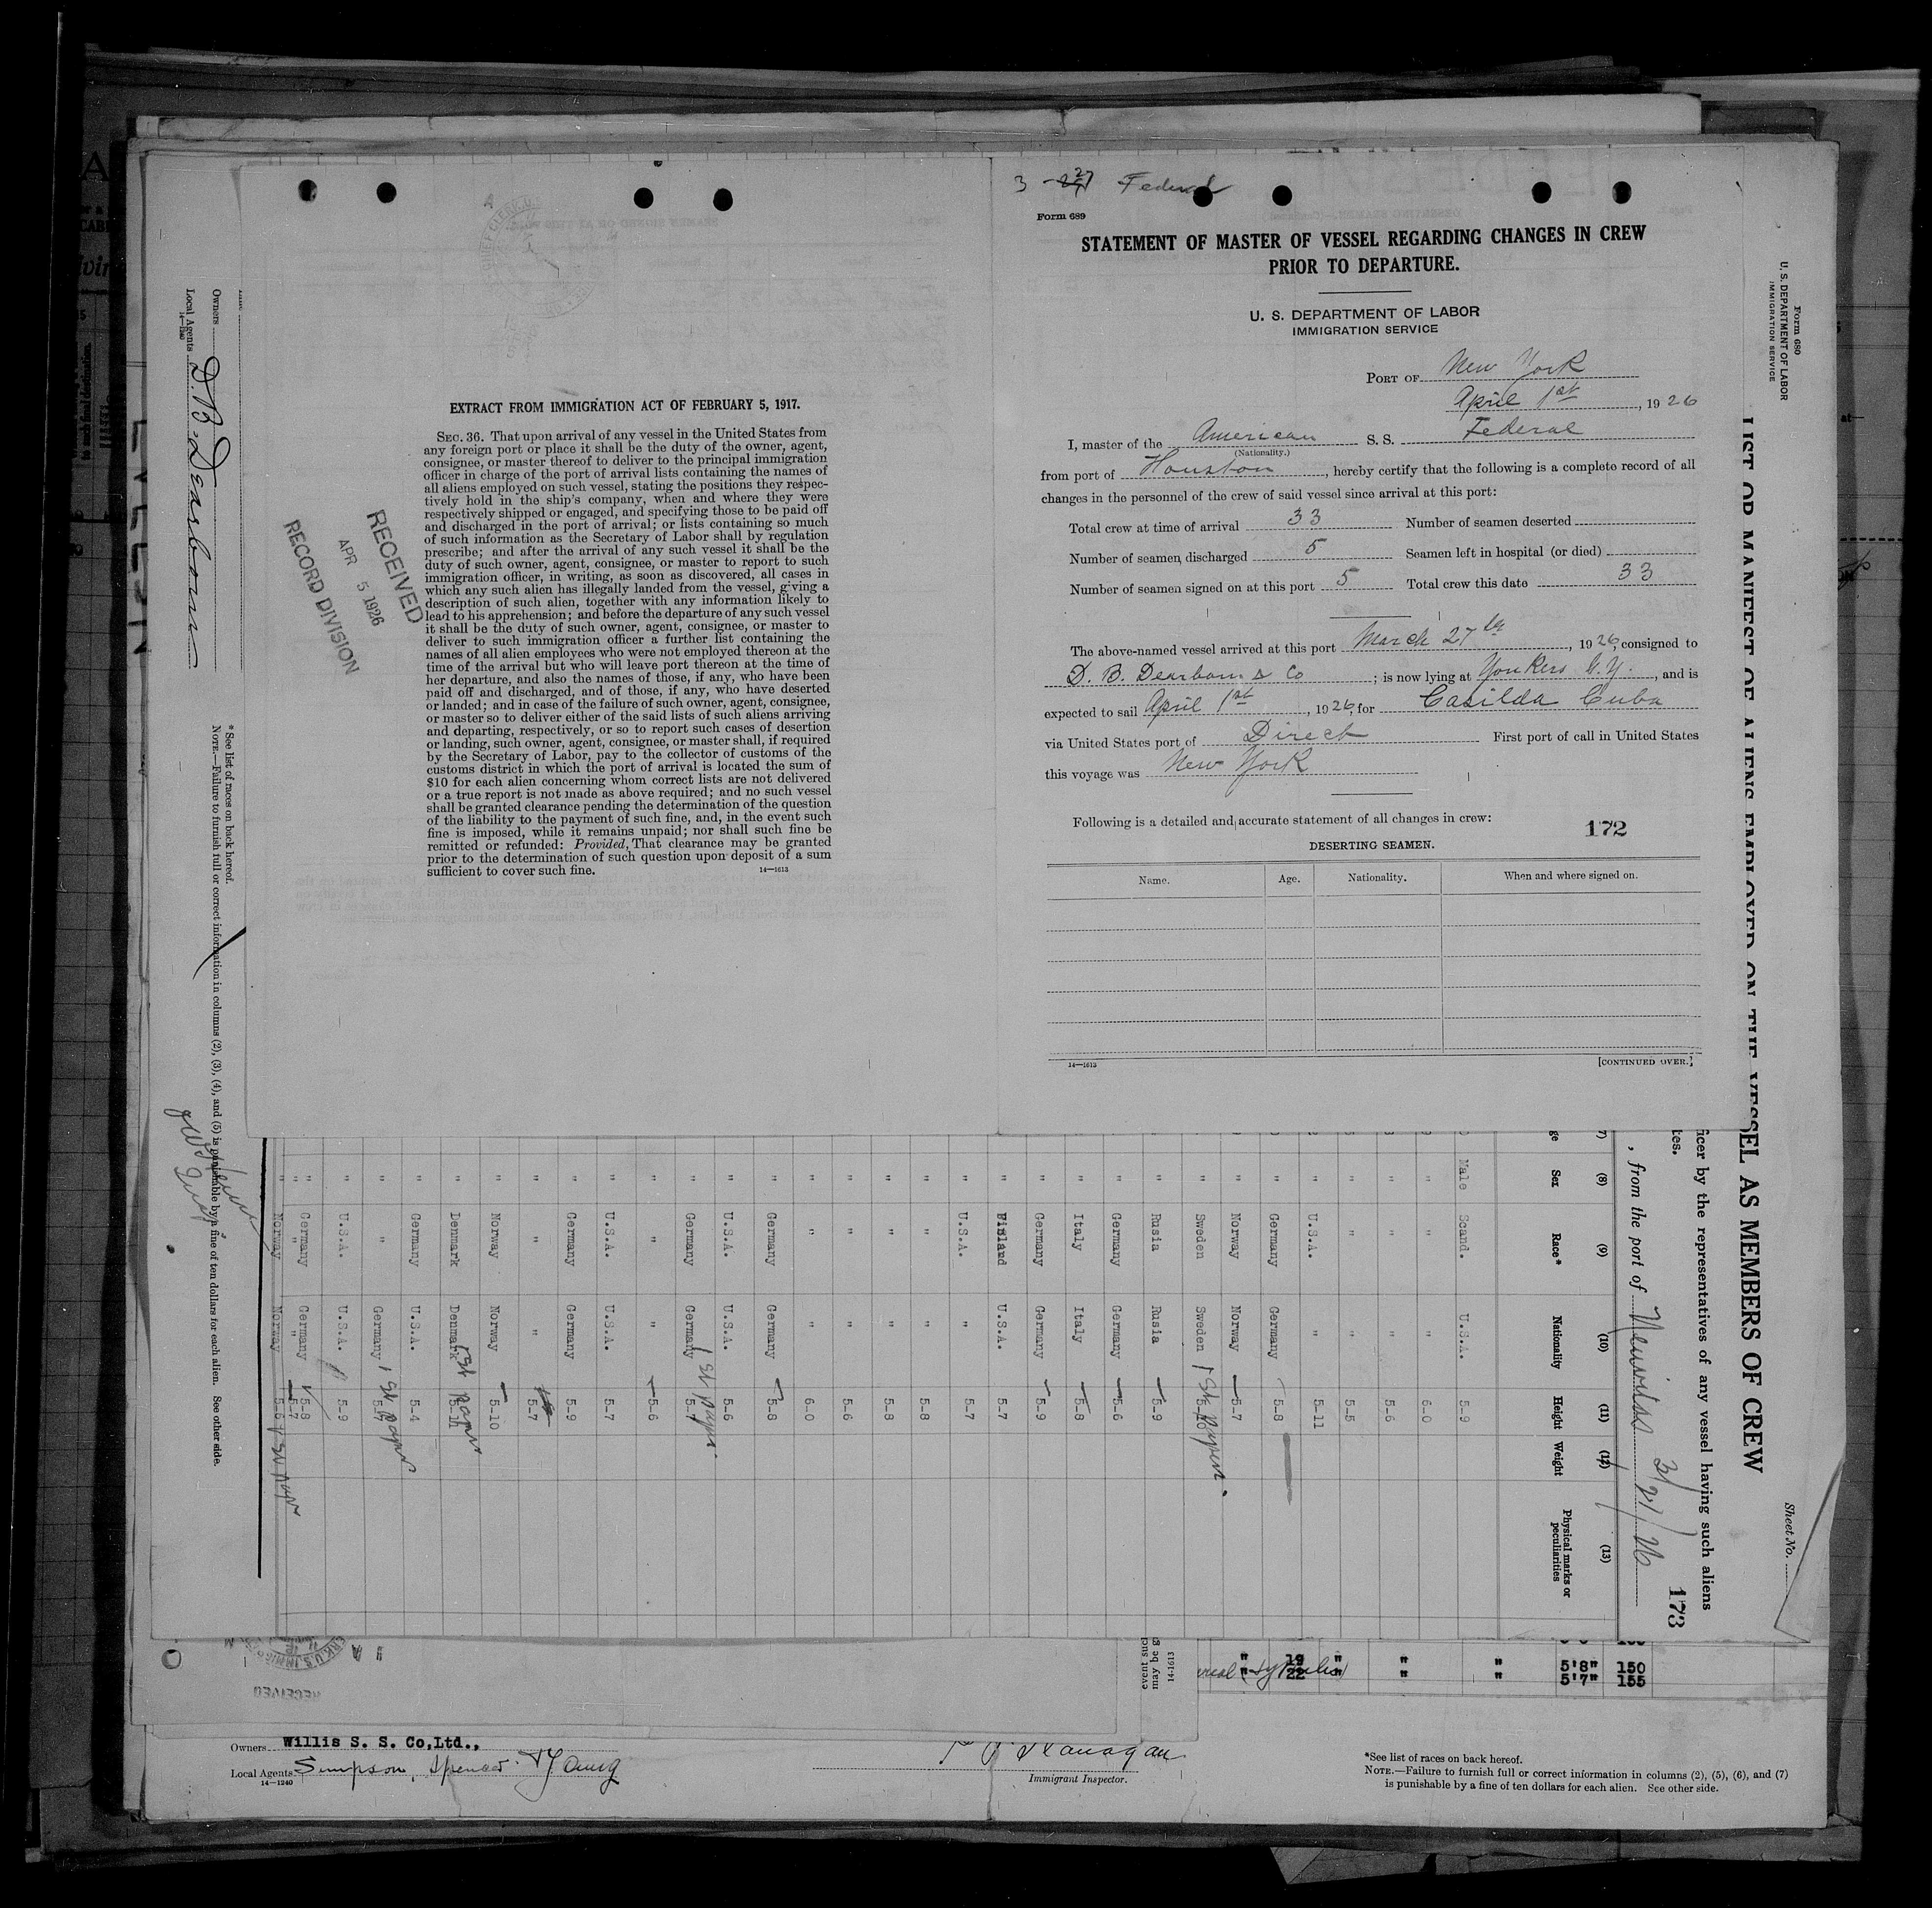 3 - 27 Federal
Form 689
STATEMENT OF MASTER OF VESSEL REGARDING CHANGES IN CREW
PRIOR TO DEPARTURE.
U. S. DEPARTMENT OF LABOR
IMMIGRATION SERVICE
PORT OF New York
April 1st, 1926
I, master of the American S. S. Federal
(Nationality.)
from port of Houston, hereby certify that the following is a complete record of all
changes in the personnel of the crew of said vessel since arrival at this port:
Total crew at time of arrival 33 Number of seamen deserted
Number of seamen discharged 5 Seamen left in hospital (or died)
Number of seamen signed on at this port 5 Total crew this date 33
The above-named vessel arrived at this port March 27th, 1926, consigned to
D. B. Dearborn & Co; is now lying at Yonkers N.Y., and is
expected to sail April 1st, 1926, for Casilda Cuba
via United States port of Direct First port of call in United States
this voyage was New York
Following is a detailed and accurate statement of all changes in crew:
172
DESERTING SEAMEN.
Name. Age. Nationality. When and where signed on.
14—1613 [CONTINUED OVER.]
EXTRACT FROM IMMIGRATION ACT OF FEBRUARY 5, 1917.
SEC. 36. That upon arrival of any vessel in the United States from
any foreign port or place it shall be the duty of the owner, agent,
consignee, or master thereof to deliver to the principal immigration
officer in charge of the port of arrival lists containing the names of
all aliens employed on such vessel, stating the positions they respec-
tively hold in the ship's company, when and where they were
respectively shipped or engaged, and specifying those to be paid off
and discharged in the port of arrival; or lists containing so much
of such information as the Secretary of Labor shall by regulation
prescribe; and after the arrival of any such vessel it shall be the
duty of such owner, agent, consignee, or master to report to such
immigration officer, in writing, as soon as discovered, all cases in
which any such alien has illegally landed from the vessel, giving a
description of such alien, together with any information likely to
lead to his apprehension; and before the departure of any such vessel
it shall be the duty of such owner, agent, consignee, or master to
deliver to such immigration officer a further list containing the
names of all alien employees who were not employed thereon at the
time of the arrival but who will leave port thereon at the time of
her departure, and also the names of those, if any, who have been
paid off and discharged, and of those, if any, who have deserted
or landed; and in case of the failure of such owner, agent, consignee,
or master so to deliver either of the said lists of such aliens arriving
and departing, respectively, or so to report such cases of desertion
or landing, such owner, agent, consignee, or master shall, if required
by the Secretary of Labor, pay to the collector of customs of the
customs district in which the port of arrival is located the sum of
$10 for each alien concerning whom correct lists are not delivered
or a true report is not made as above required; and no such vessel
shall be granted clearance pending the determination of the question
of the liability to the payment of such fine, and, in the event such
fine is imposed, while it remains unpaid; nor shall such fine be
remitted or refunded: Provided, That clearance may be granted
prior to the determination of such question upon deposit of a sum
sufficient to cover such fine.
14—1613
RECEIVED
APR 5 1926
RECORD DIVISION
Form 680
U. S. DEPARTMENT OF LABOR
IMMIGRATION SERVICE
Sheet No.
LIST OR MANIFEST OF ALIENS EMPLOYED ON THE VESSEL AS MEMBERS OF CREW
icer by the representatives of any vessel having such aliens
tes.
173
, from the port of Neuvitas 3/27/26
7) (8) (9) (10) (11) (12) (13)
ge Sex Race* Nationality Height Weight Physical marks or peculiarities
Male Scand. U.S.A. 5-9
" " " 6-0
" " " 5-6
" " " 5-5
" U.S.A. " 5-11
" Germany Germany 5-8
" Norway Norway 5-7
" Sweden Sweden 5-10 1st papers.
" Rusia Rusia 5-9
" Germany Germany 5-6
" Italy Italy 5-8
" Germany Germany 5-9
" Finland U.S.A. 5-7
" U.S.A. " 5-7
" " " 5-8
" " " 5-8
" " " 5-6
" " " 6-0
" Germany Germany 5-8
" U.S.A. U.S.A. 5-6
" Germany Germany 5-7 1st paper.
" " " 5-6
" U.S.A. U.S.A. 5-7
" Germany Germany 5-9
" " " 5-7
" Norway Norway 5-10
" Denmark Denmark 5-11 1st papers
" Germany U.S.A. 5-4
" " Germany 5-7 1st papers
" U.S.A. U.S.A. 5-9
" Germany Germany 5-8
" " " 5-7
" Norway Norway 5-6 1st paper
*See list of races on back hereof.
NOTE.—Failure to furnish full or correct information in columns (2), (3), (4), and (5) is punishable by a fine of ten dollars for each alien. See other side.
Owners
Local Agents D. B. Dearborn
14—1240
event suc
may be g
14-1613
" 19 " " " 5'8" 150
" 22 " " " 5'7" 155
RECEIVED
Owners Willis S. S. Co,Ltd.,
Local Agents Simpson, Spencer & Young
14—1240
Flanagan
Immigrant Inspector.
*See list of races on back hereof.
NOTE.—Failure to furnish full or correct information in columns (2), (5), (6), and (7)
is punishable by a fine of ten dollars for each alien. See other side.